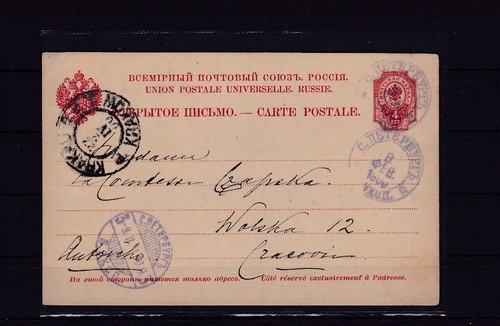 ВСЕМІРНЫЙ ПОЧТОВЫЙ СОЮЗЪ. РОССІЯ.
UNION POSTALE UNIVERSELLE. RUSSIE.
ОТКРЫТОЕ ПИСЬМО. — CARTE POSTALE.
4 КОП
С. ПЕТЕРБУРГЪ
С. ПЕТЕРБУРГЪ
8
ФЕВ.
Madame
la Comtesse Czapska
Wolska 12.
С. ПЕТЕРБУРГЪ
Autriche
Cracovie
На этой сторонѣ пишется только адресъ. Côté réservé exclusivement à l'adresse.